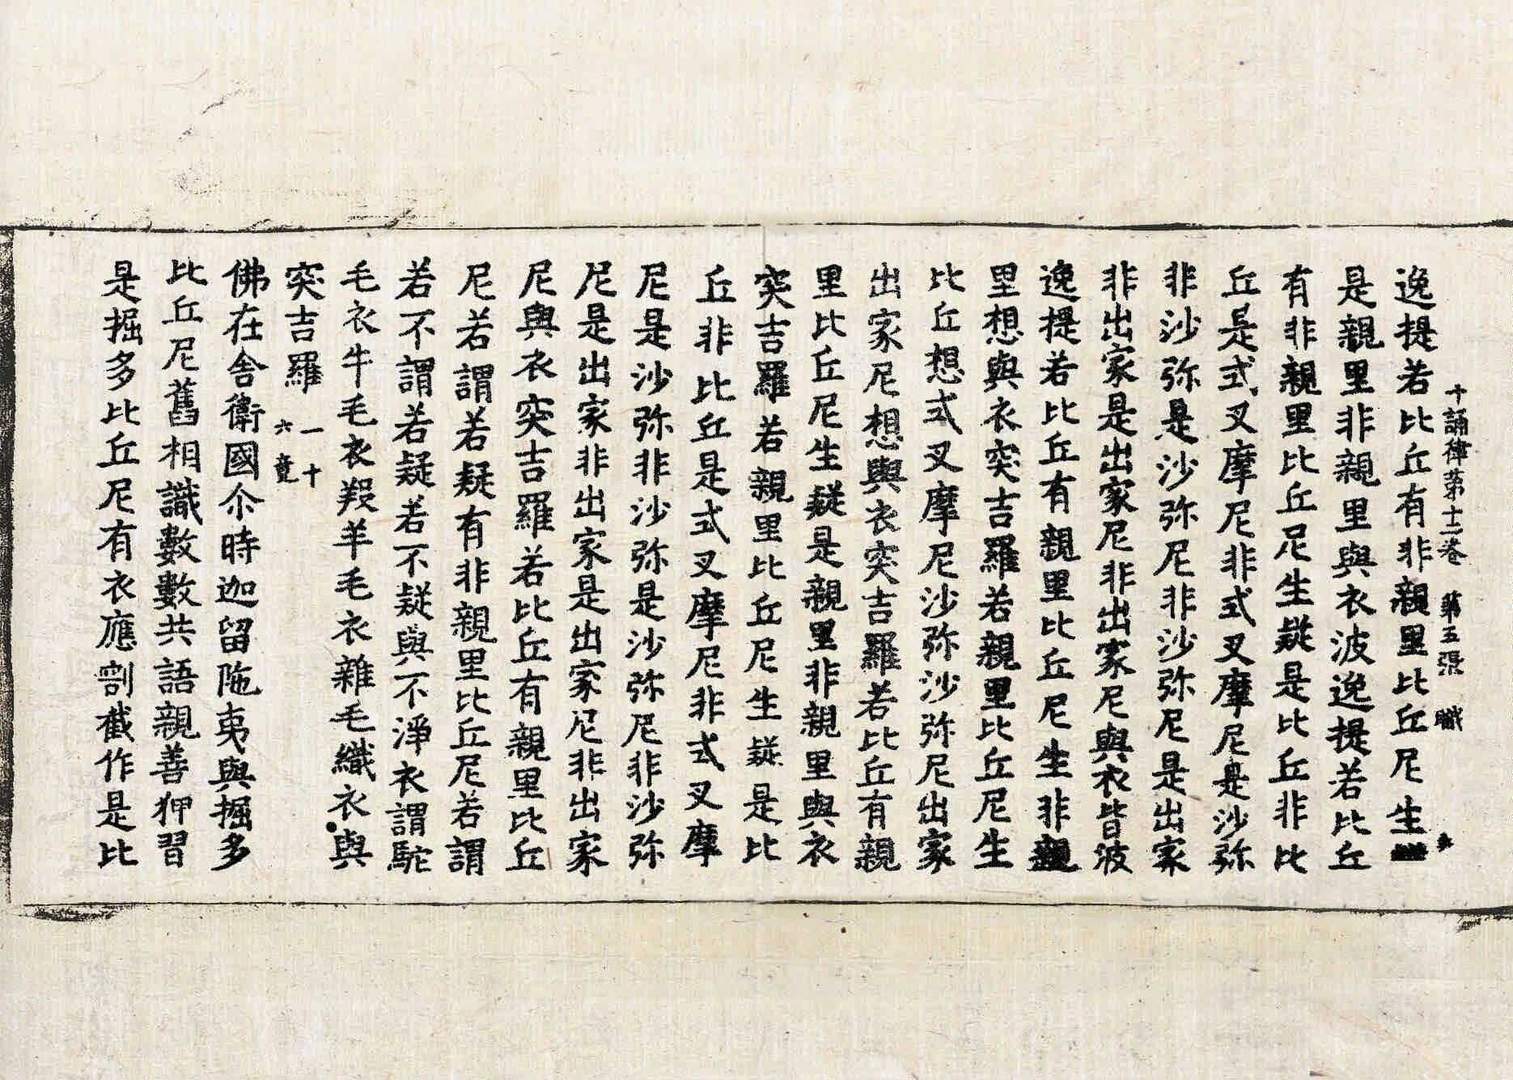 十誦律第十二卷 第五張 職
逸提若比丘有非親里比丘尼生
是親里非親里與衣波逸提若比丘
有非親里比丘尼生疑是比丘非比
丘是式叉摩尼非式叉摩尼是沙弥
非沙弥是沙弥尼非沙弥尼是出家
非出家是出家尼非出家尼與衣皆波
逸提若比丘有親里比丘尼生非親
里想與衣突吉羅若親里比丘尼生
比丘想式叉摩尼沙弥沙弥尼出家
出家尼想與衣突吉羅若比丘有親
里比丘尼生疑是親里非親里與衣
突吉羅若親里比丘尼生疑是比
丘非比丘是式叉摩尼非式叉摩
尼是沙弥非沙弥是沙弥尼非沙弥
尼是出家非出家是出家尼非出家
尼與衣突吉羅若比丘有親里比丘
尼若謂若疑有非親里比丘尼若謂
若不謂若疑若不疑與不淨衣謂駝
毛衣牛毛衣羖羊毛衣雜毛織衣與
突吉羅 一十六竟
佛在舍衛國尒時迦留陁夷與掘多
比丘尼舊相識數數共語親善狎習
是掘多比丘尼有衣應割截作是比